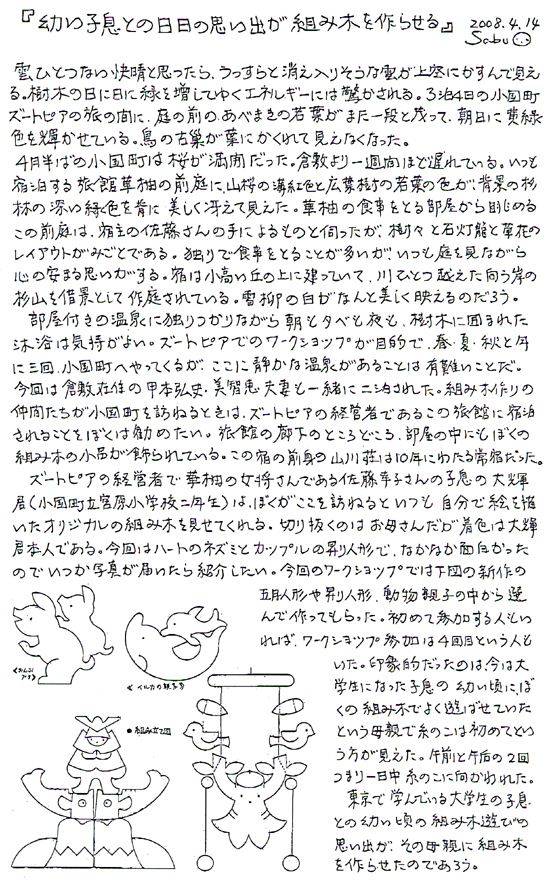 『幼い子息との日日の思い出が組み木を作らせる』 2008.4.14
Sabu
雲ひとつない快晴と思ったら、うっすらと消え入りそうな雲が上空にかすんで見え
る。樹木の日に日に緑を増してゆくエネルギーには驚かされる。3泊4日の小国町
ズートピアの旅の間に、庭の前の、あべまきの若葉がまた一段と茂って、朝日に黄緑
色を輝かせている。鳥の古巣が葉にかくれて見えなくなった。
4月半ばの小国町は桜が満開だった。倉敷より一週間ほど遅れている。いつも
宿泊する旅館草柚の前庭に、山桜の薄紅色と広葉樹の若葉の色が、背景の杉
林の深い緑色を背に美しく冴えて見えた。草柚の食事をとる部屋から眺める
この前庭は、宿主の佐藤さんの手によるものと伺ったが、樹々と石灯籠と草花の
レイアウトがみごとである。独りで食事をとることが多いが、いつも庭を見ながら
心の安まる思いがする。宿は小高い丘の上に建っていて、川ひとつ越えた向う岸の
杉山を借景として作庭されている。雪柳の白がなんと美しく映えるのだろう。
部屋付きの温泉に独りつかりながら朝も夕べも夜も、樹木に囲まれた
沐浴は気持がよい。ズートピアでのワークショップが目的で、春・夏・秋と年
に三回、小国町へやってくるが、ここに静かな温泉があることは有難いことだ。
今回は倉敷在住の甲本弘史・美智恵夫妻も一緒に二泊された。組み木作りの
仲間たちが小国町を訪ねるときは、ズートピアの経営者であるこの旅館に宿泊
されることをぼくは勧めたい。旅館の廊下のところどころ、部屋の中にもぼくの
組み木の小品が飾られている。この宿の前身の山川荘は10年にわたる常宿だった。
ズートピアの経営者で草柚の女将さんである佐藤幸子さんの子息の大輝
君(小国町立宮原小学校二年生)は、ぼくがここを訪ねるといつも自分で絵を描
いたオリジナルの組み木を見せてくれる。切り抜くのはお母さんだが着色は大輝
君本人である。今回はハートのネズミとカップルの昇り人形で、なかなか面白かった
のでいつか写真が届いたら紹介したい。今回のワークショップでは下図の新作の
五月人形や昇り人形、動物親子の中から選
んで作ってもらった。初めて参加する人もい
れば、ワークショップ参加は4回目という人も
いた。印象的だったのは、今は大
学生になった子息の幼い頃に、ぼ
くの組み木でよく遊ばせていた
という母親で糸のこは初めてとい
う方が見えた。午前と午后の2回
つまり一日中糸のこに向かわれた。
東京で学んでいる大学生の子息
との幼い頃の組み木遊びの
思い出が、その母親に組み木
を作らせたのであろう。
《おんぶクマ》
《イルカの親子》
●組み立て図